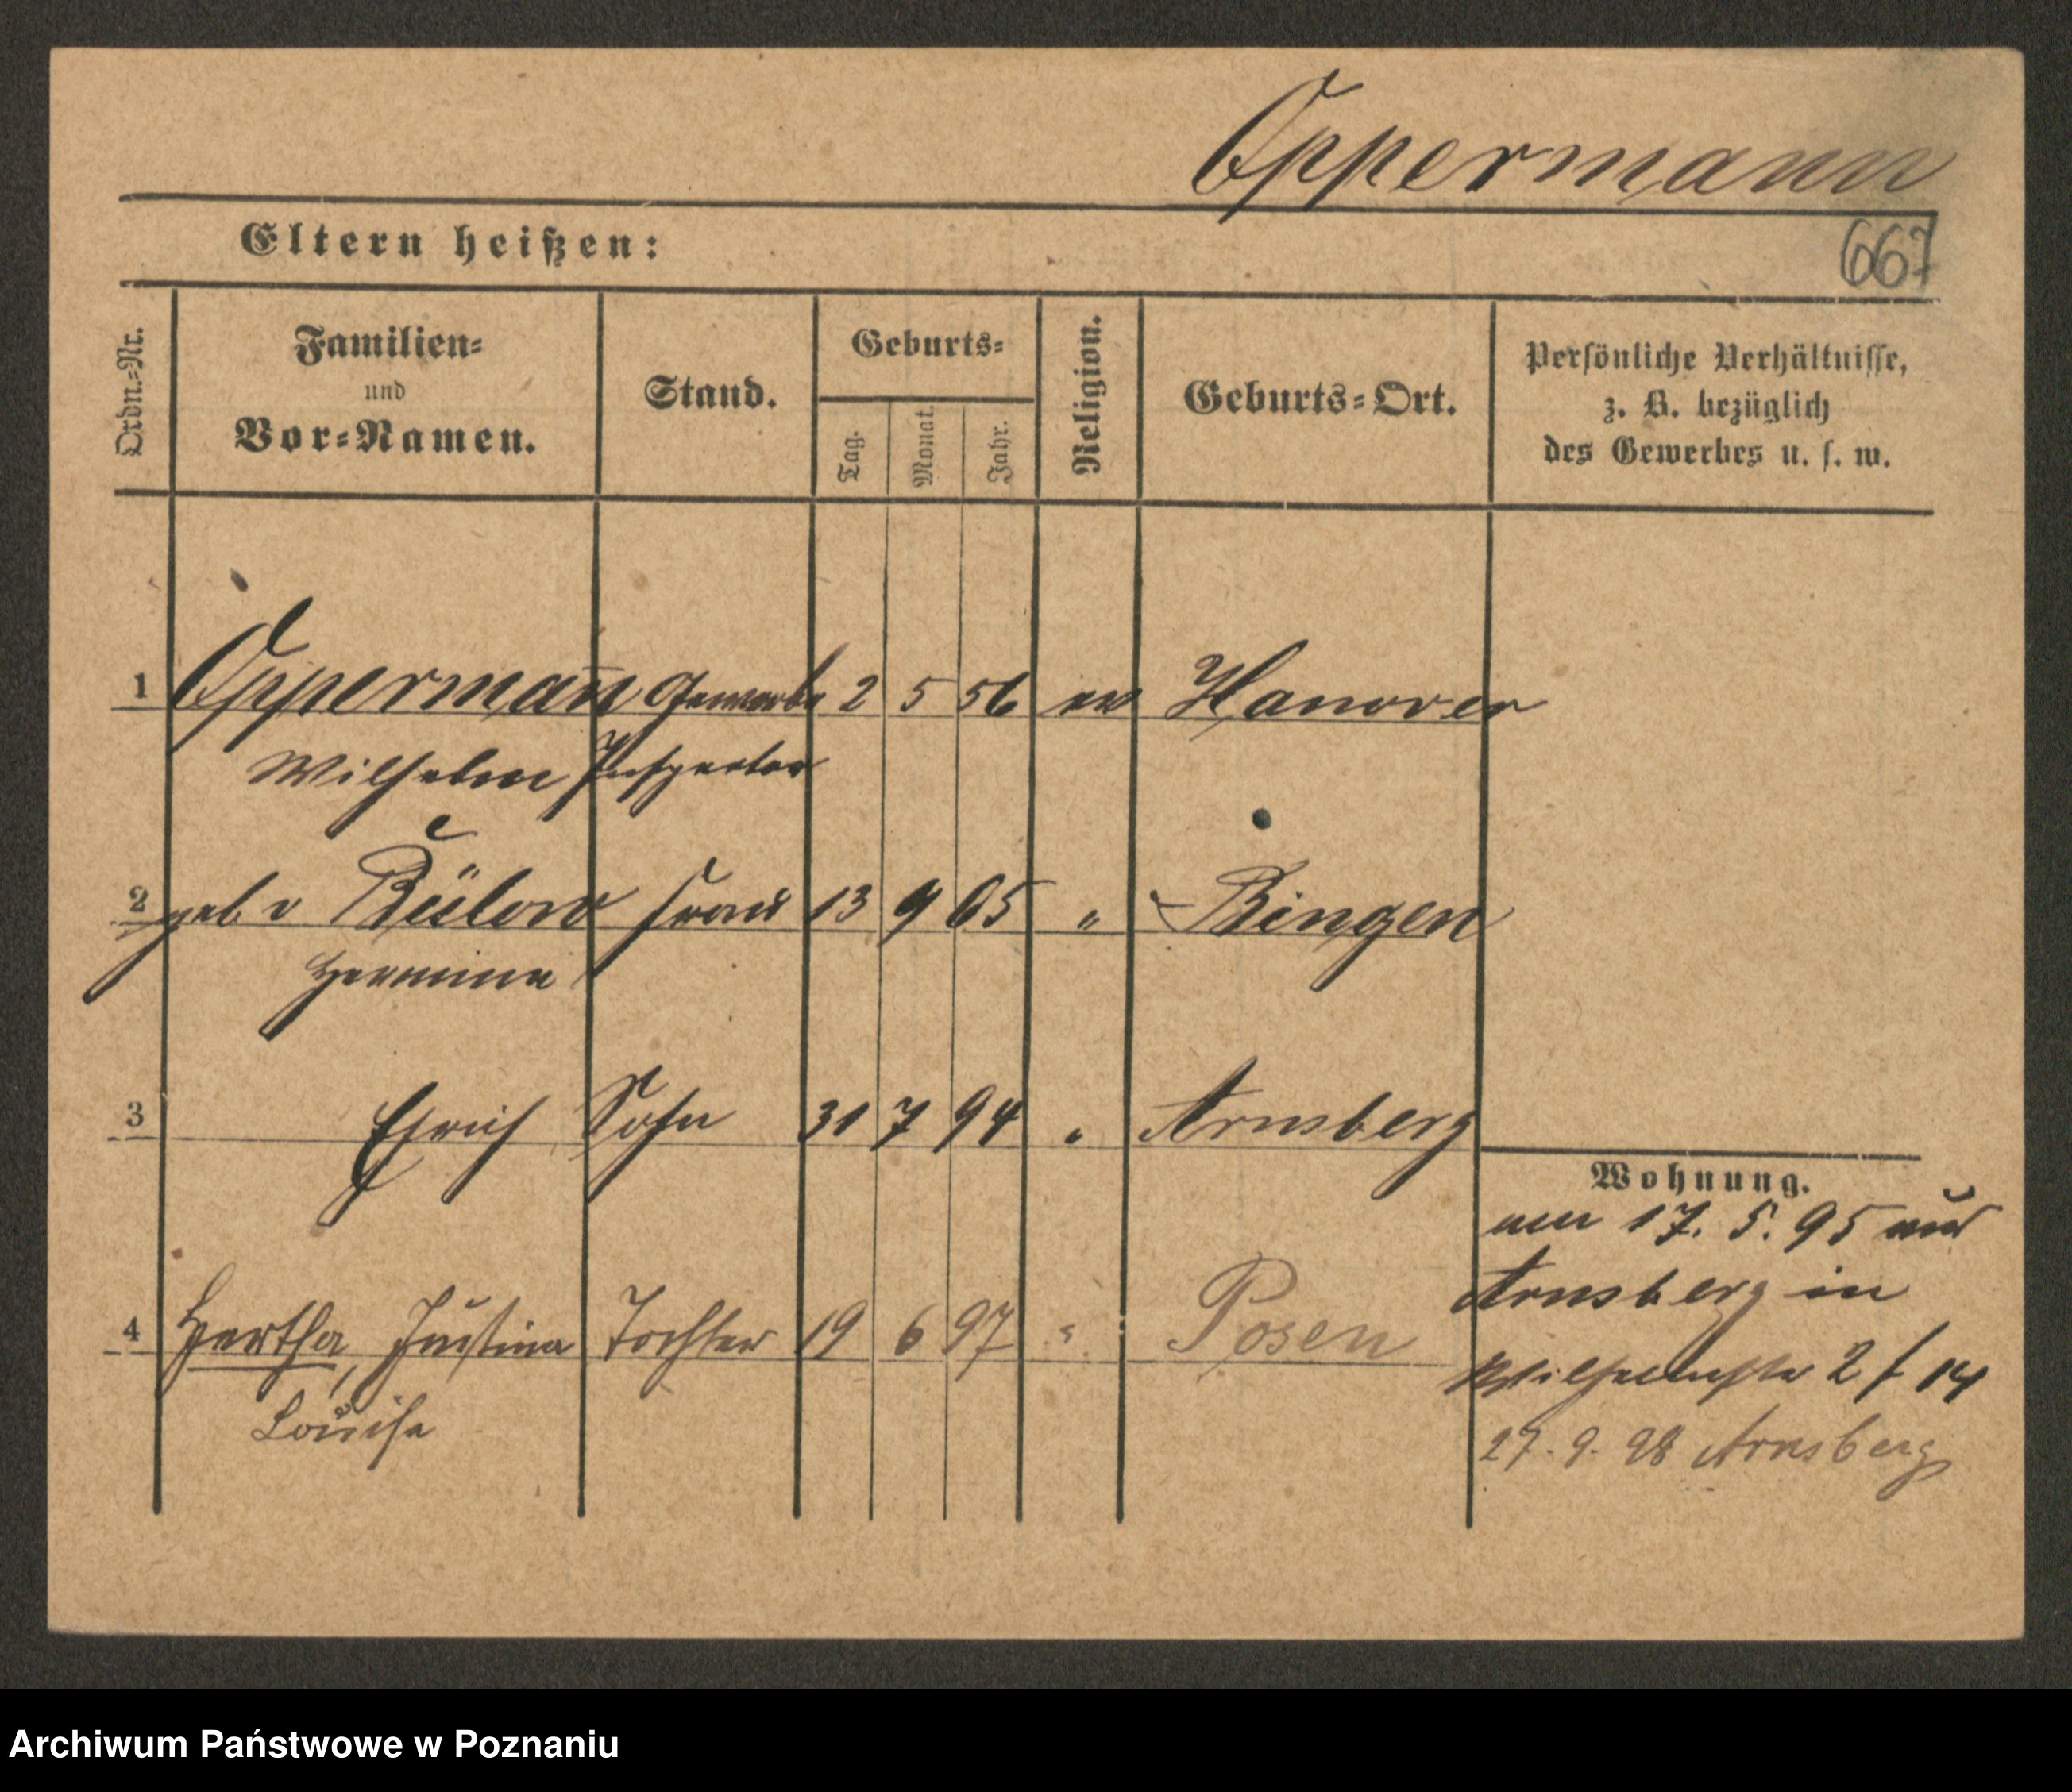 Oppermann
Eltern heißen:
667
Ordn.=Nr.
Familien=
und
Vor=Namen.
Stand.
Geburts=
Tag.
Monat.
Jahr.
Religion.
Geburts=Ort.
Persönliche Verhältnisse,
z. B. bezüglich
des Gewerbes u. s. w.
1 Opperman̅ Gewerbe 2 5 56 ev Hanover
Wilhelm Inspector
2 geb v Bülow Frau 13 9 65 " Bingen
Hermine
3 Ehrich Sohn 31 7 94 " Arnsberg
Wohnung.
17. 5. 95 aus
Arnsberg in
4 Hertha, Justina Tochter 19 6 97 " Posen
Wilhelmstr 2 / 14
Louise
27. 9. 98 Arnsberg
Archiwum Państwowe w Poznaniu